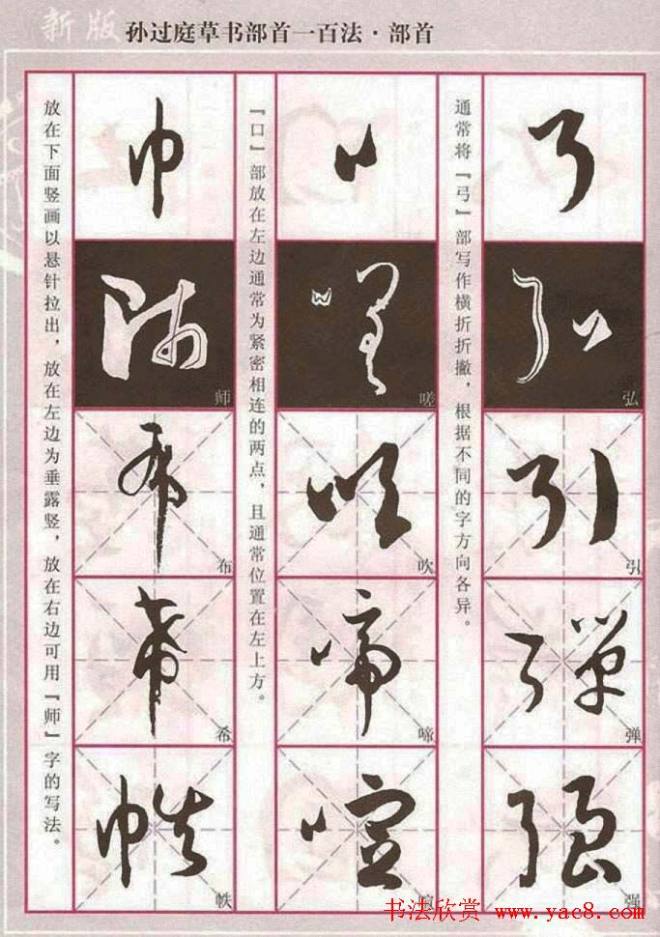 新版 孙过庭草书部首一百法·部首
通常将『弓』部写作横折折撇，根据不同的字方向各异。
弘
引
弹
强
『口』部放在左边通常为紧密相连的两点，且通常位置在左上方。
嗟
吹
啼
放在下面竖画以悬针拉出，放在左边为垂露竖，放在右边可用『师』字的写法。
师
布
希
帙
书法欣赏 www.yac8.com